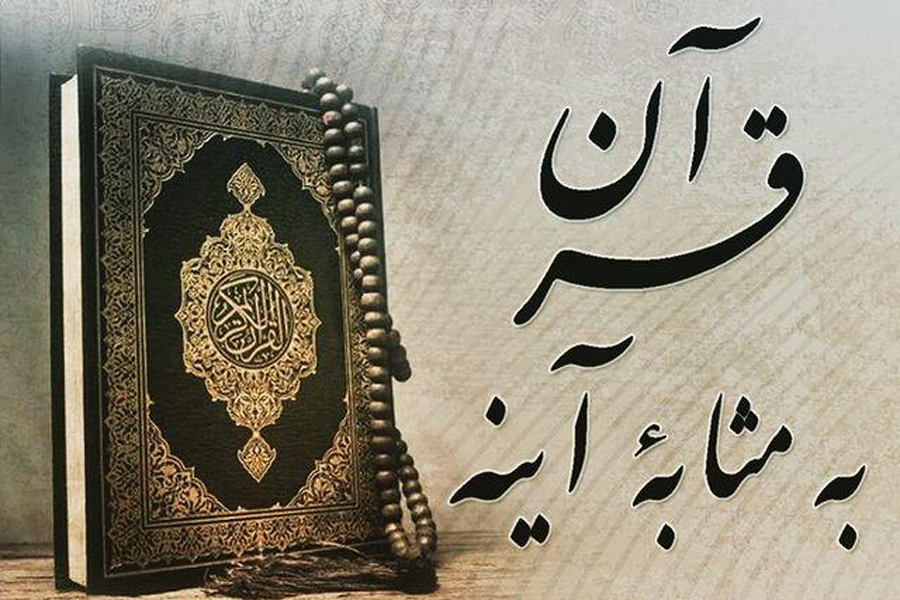 قرآن
به مثابهٔ آینه
القرآن الكريم